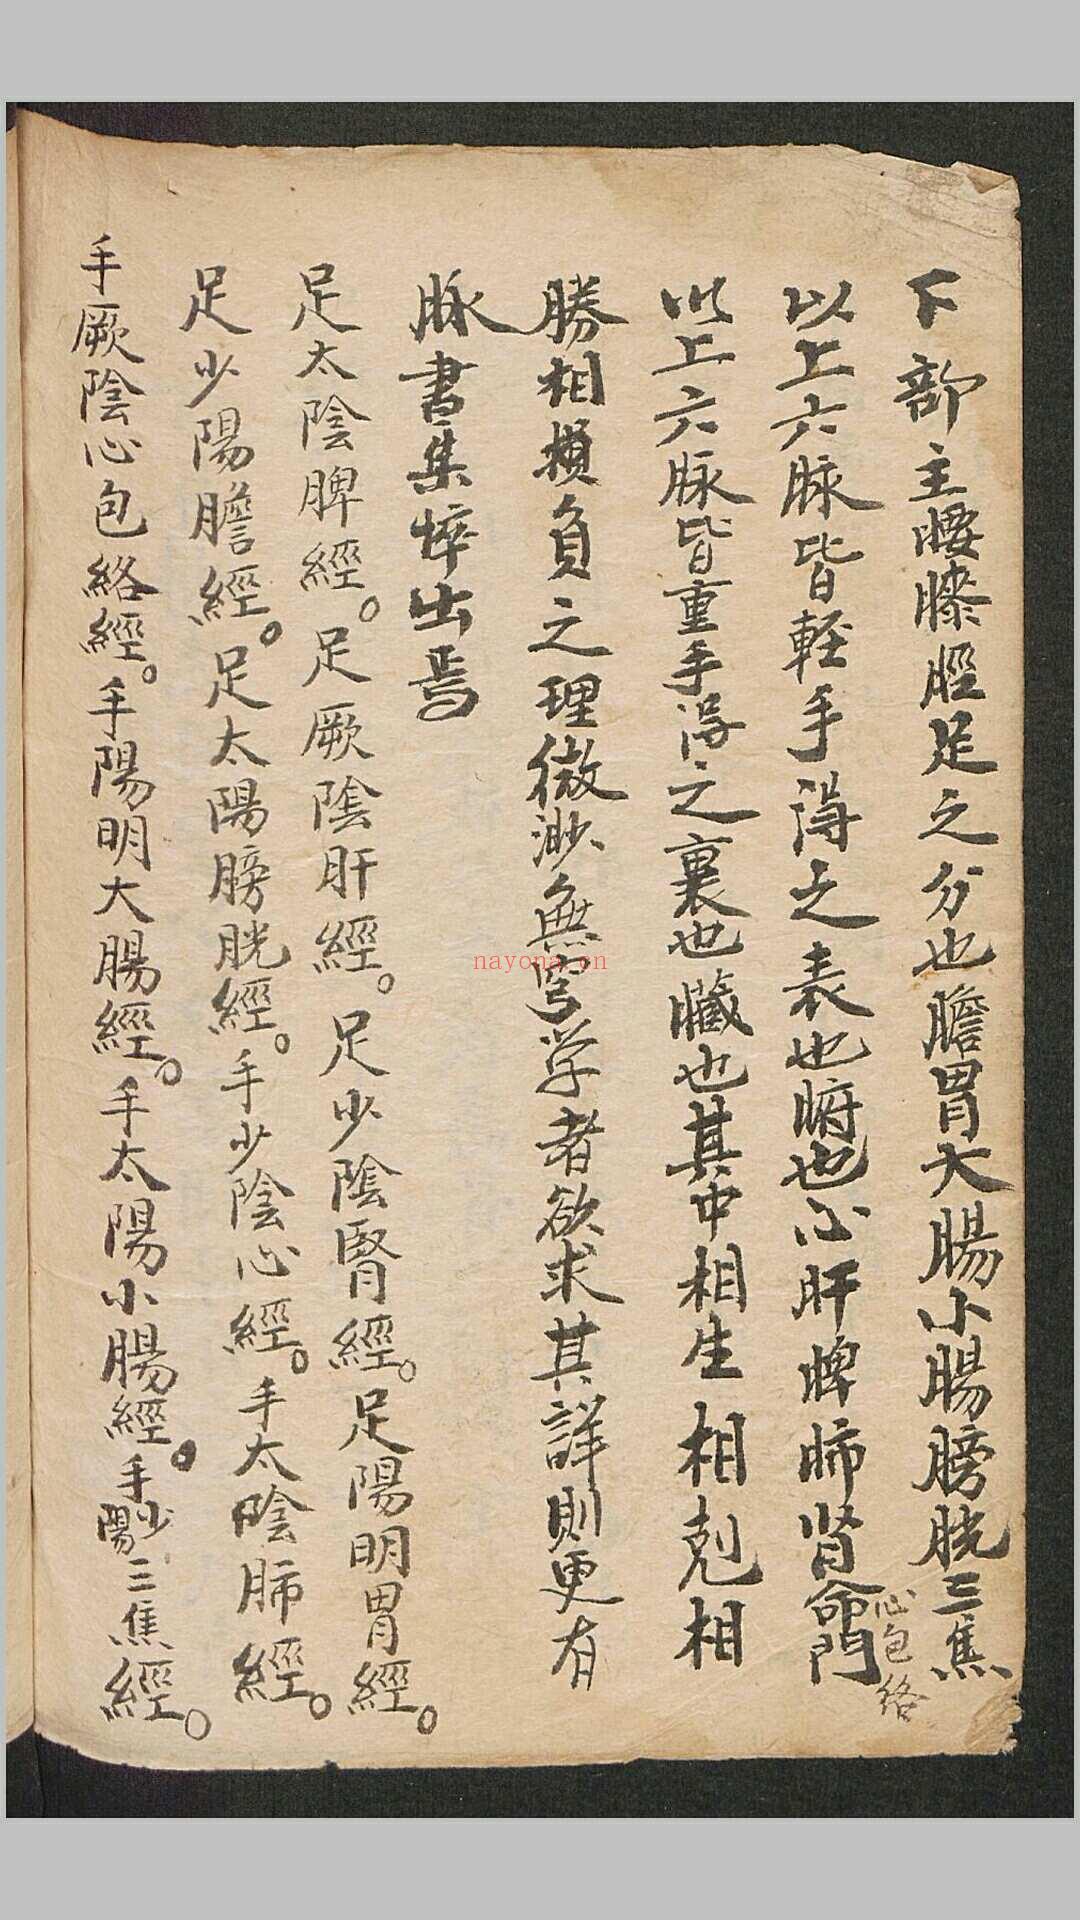 下部主腰膝脛足之分也膽胃大腸小腸膀胱三焦
以上六脉皆軽手得之表也腑也心肝脾肺肾命門
心包络
以上六脉皆重手得之裏也臟也其中相生相剋相
勝相損負之理微渺無穹学者欲求其詳則更有
脉書集悴出焉
足太陰脾經。足厥陰肝經。足少陰腎經。足陽明胃經。
足少陽膽經。足太陽膀胱經。手少陰心經。手太陰肺經。
手厥陰心包絡經。手陽明大腸經。手太陽小腸經。手少陽三焦經。
nayona.cn